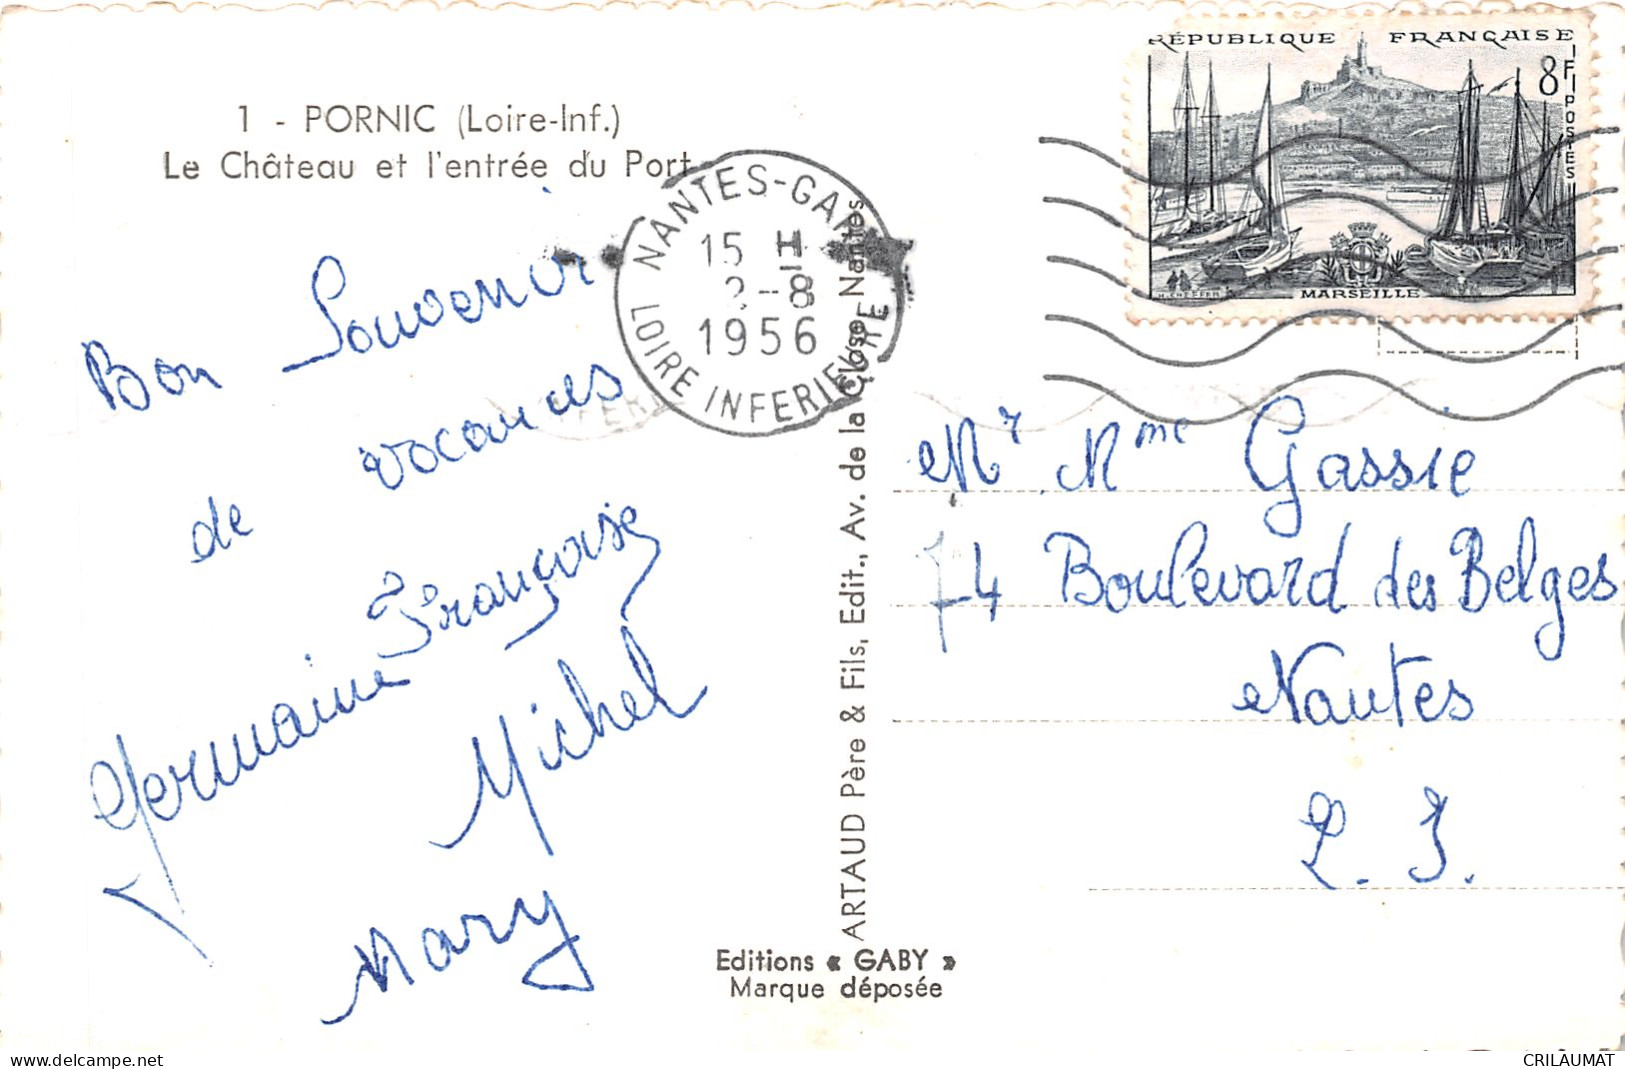 1 - PORNIC (Loire-Inf.)
Le Château et l'entrée du Port
Bon Souvenir
de vacances
Germaine Françoise
Michel
Mary
NANTES-GARE
15 H
2-8
1956
LOIRE INFERIEURE
RÉPUBLIQUE FRANÇAISE
8F
POSTES
MARSEILLE
ARTAUD Père & Fils, Edit., Av. de la Close, Nantes
Editions « GABY »
Marque déposée
Mr Mme Gassie
74 Boulevard des Belges
Nantes
L. I.
www.delcampe.net
CRILAUMAT